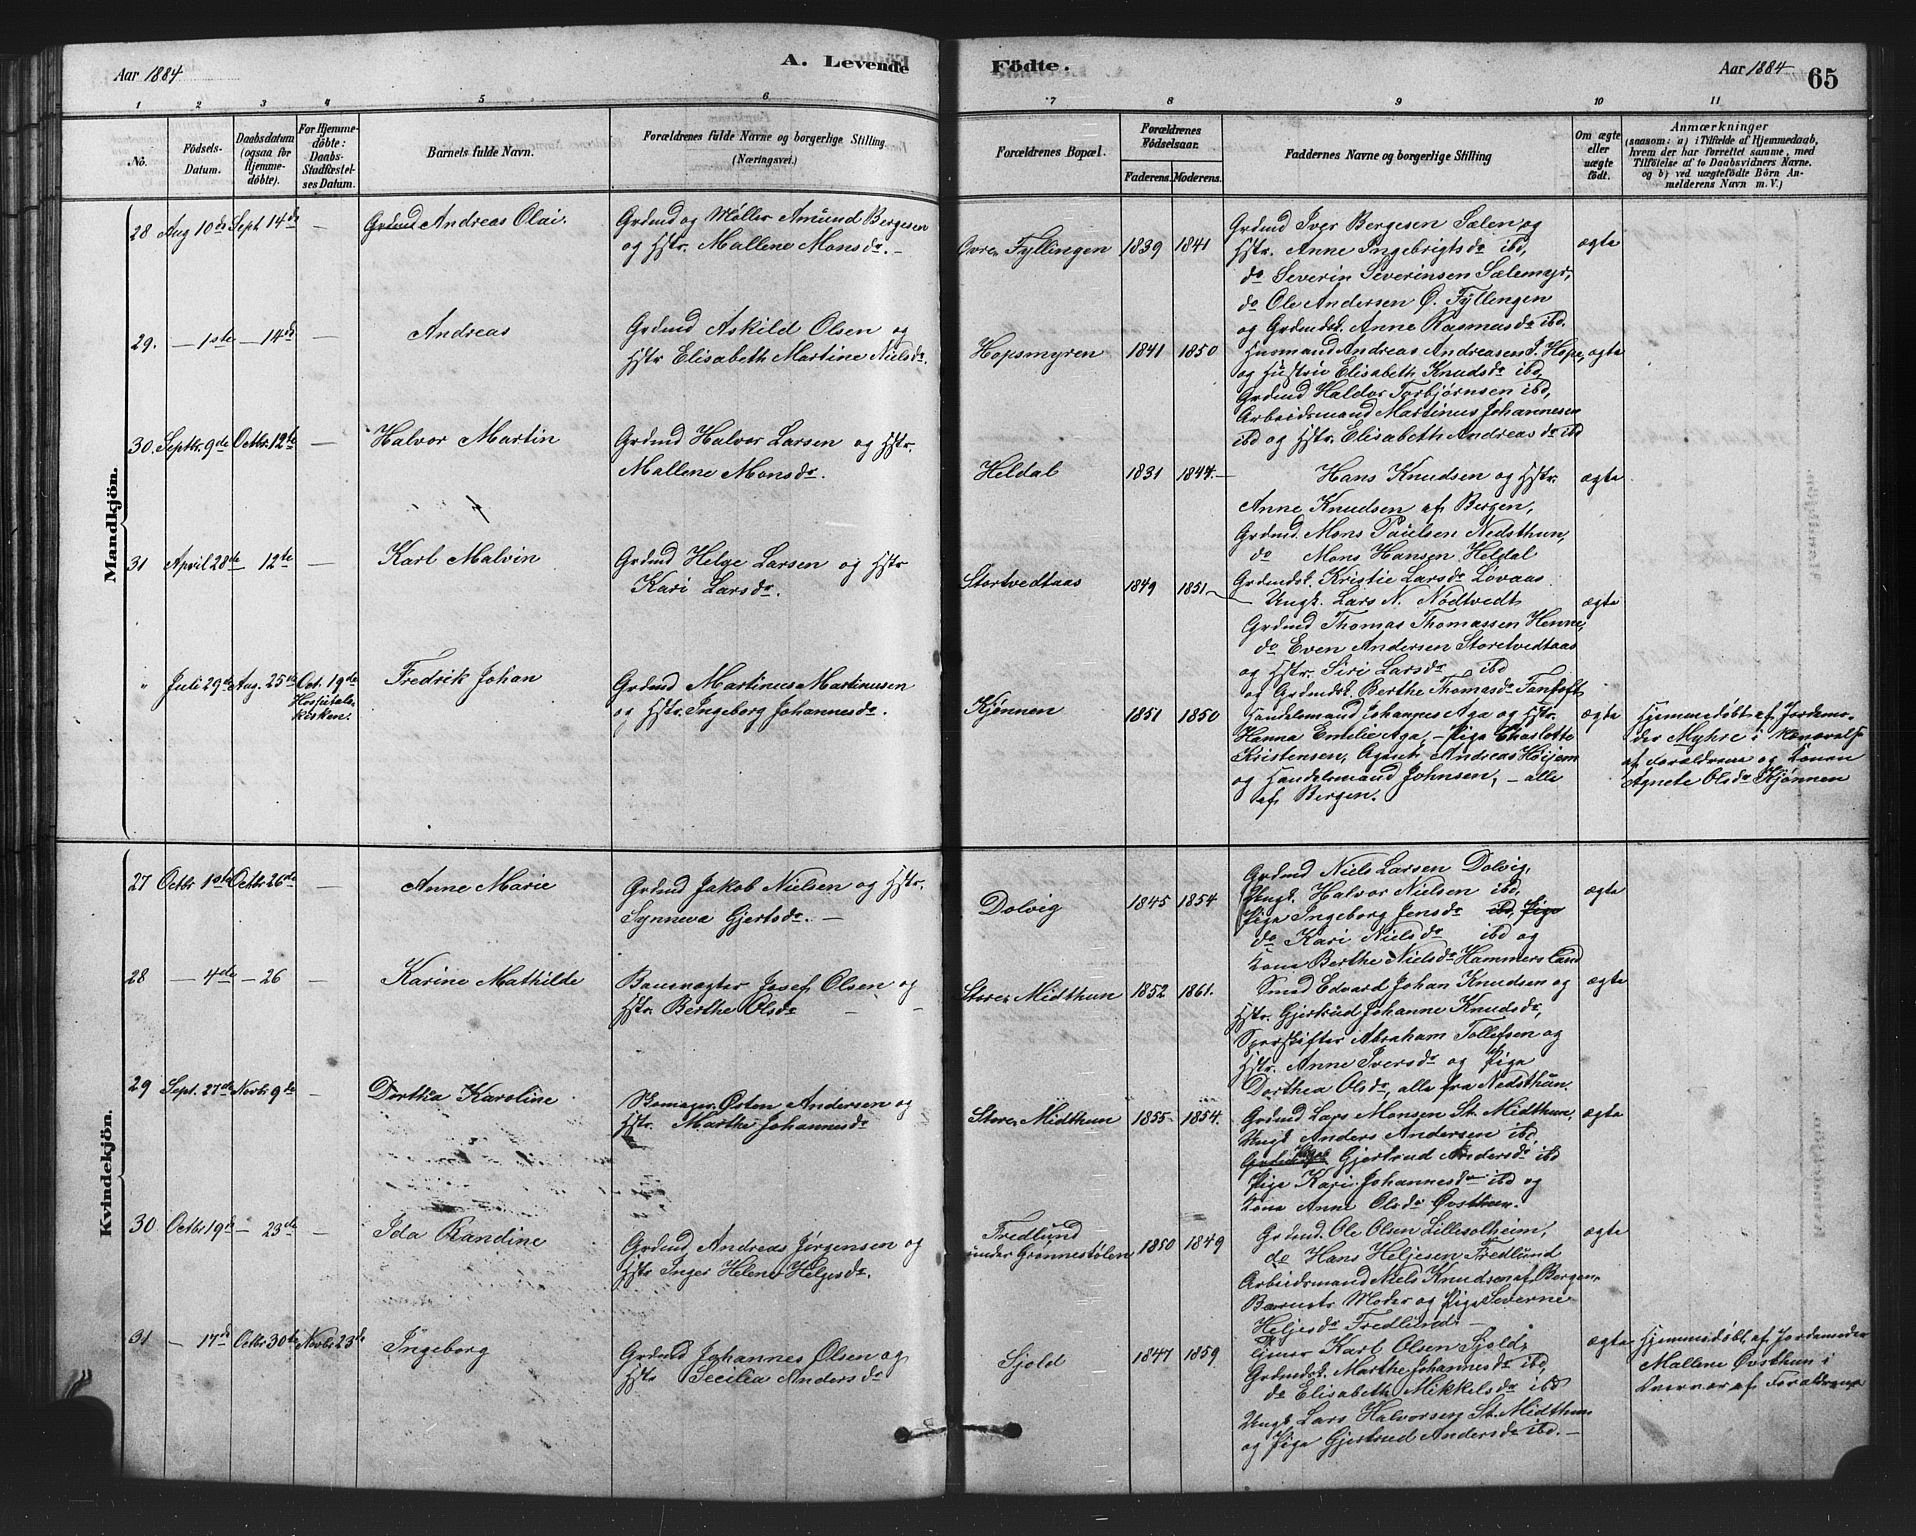 Aar 1884
A. Levende
Födte.
Aar 1884
65
1 2 3 4 5 6 7 8 9 10 11
No.
Födsels-
Datum.
Daabsdatum
(ogsaa for
Hjemme-
döbte).
For Hjemme-
döbte:
Daabs-
Stadfæstel-
ses Datum.
Barnets fulde Navn.
Forældrenes fulde Navne og borgerlige Stilling
(Næringsvei.)
Forældrenes Bopæl.
Forældrenes
Födselsaar.
Faderens. Moderens.
Faddernes Navne og borgerlige Stilling
Om ægte
eller
uægte
födt.
Anmærkninger
(saasom: a) i Tilfælde af Hjemmedaab,
hvem der har forrettet samme, med
Tilföielse af to Daabsvidners Navne.
og b) ved uægtefödte Börn An-
melderens Navn m. V.)
Mandkjön.
28 Aug 10de Sept 14de — Andreas Olai.
Grdmd og Møller Amund Bergesen
og Hstr. Mallene Monsdr. —
Øvre Fyllingen 1839 1841
Grdmd Iver Bergesen Sælen og
Hstr. Anne Ingebrigtsdr ibd,
do Severin Severinsen Sælemyr,
do Ole Andersen Ø. Fyllingen
og Grdmdsk. Anne Rasmusdr ibd.
ægte
29. — 1ste — 14de — Andreas
Grdmd Askild Olsen og
Hstr Elisabeth Martine Nielsdr.
Hopsmyren 1841 1850
Husmand Andreas Andreasen S. Hope,
og Hustru Elisabeth Knudsdr ibd,
Grdmd Haldor Torbjørnsen ibd,
Arbeidsmand Martinus Johannesen
ibd og Hstr. Elisabeth Andreasdr ibd
ægte
30. Septbr. 9de Octbr. 12te — Halvor Martin
Grdmd Halvor Larsen og Hstr.
Mallene Monsdr.
Heldal 1831 1844. —
Hans Knudsen og Hstr.
Anne Knudsen af Bergen,
Grdmd. Mons Paulsen Nedsthun,
do Mons Hansen Heldal
Grdmdsk. Kristie Larsdr Løvaas
ægte
31 April 28de 12te — Karl Malvin
Grdmd Helge Larsen og Hstr
Kari Larsdr.
Stortvedtaas 1849 1851
Ungk. Lars N. Nödtvedt
Grdmd Thomas Thomassen Henne,
do Even Andersen Storetvedtaas
og Hstr. Siri Larsdr ibd
og Grdmdsk. Berthe Thomasdr Fantoft
ægte
" Juli 29de Aug. 25de Oct. 19de
Hospitals-
kirken.
Fredrik Johan
Grdmd Martinus Martinusen
og Hstr. Ingeborg Johannesdr.
Kjønnen 1851 1850
Handelsmand Johannes Aga og Hstr.
Hanna Emelie Aga, — Pige Charlotte
Kristensen, Agent Andreas Høijem
og Handelsmand Johnsen, — alle
af Bergen.
ægte
Hjemmedøbt af Jordemo-
der Myhre i Nærværelse
af Forældrene og Konen
Agnete Olsdr Kjønnen
Kvindekjön.
27 Octbr 1ste Octbr 26de — Anne Marie
Grdmd Jakob Nielsen og Hstr.
Synneva Gjertsdr. —
Dolvig 1845 1854
Grdmd Niels Larsen Dolvig,
Ungk. Halvor Nielsen ibd,
Pige Ingeborg Jensdr ibd, Pige
do Kari Nielsdr ibd og
Kone Berthe Nielsdr Hammersland
ægte
28 — 4de — 26 — Karine Mathilde
Banevogter Josef Olsen og
Hstr. Berthe Olsdr —
Store Midthun 1852 1861.
Smed Edvard Johan Knudsen og
Hstr. Gjertrud Johanne Knudsdr,
Sporskifter Abraham Tollefsen og
Hstr. Anne Iversdr og Pige
Dorthea Olsdr, alle fra Nedsthun.
ægte
29 Sept. 27de Novbr 9de — Dorthea Karoline
Skomager Østen Andersen og
Hstr. Marthe Johannesdr
Store Midthun 1855 1854.
Grdmd Lars Monsen St. Midthun,
Ungk Anders Andersen ibd,
Gjertrud Andersdr ibd
Pige Kari Johannesdr ibd og
Kone Anne Olsdr Øvsthun.
ægte
30 Octbr 19de — 23de — Ida Randine
Grdmd Andreas Jørgensen og
Hstr Inger Helene Helgesdr.
Fredlund
under Grønnestølen, 1850 1849
Grdmd. Ole Olsen Lillesolheim,
do Hans Heljesen Fredlund
Arbeidsmand Niels Knudsen af Bergen,
Barnets Moder og Pige Severine
Heljesdr Fredlund —
ægte
31 — 17de Octbr 30te Novbr 23de Ingeborg
Grdmd Johannes Olsen og
Hstr Cecilia Andersdr
Sjold 1847 1859
Tjener Karl Olsen Sjold,
Grdmdsk. Marthe Johannesdr ibd,
do Elisabeth Mikkelsdr ibd
Ungk Lars Halvorsen St. Midthun
og Pige Gjertrud Andersdr ibd. —
ægte
Hjemmedøbt af Jordemoder
Mallene Øvsthun i
Overvær af Forældrene